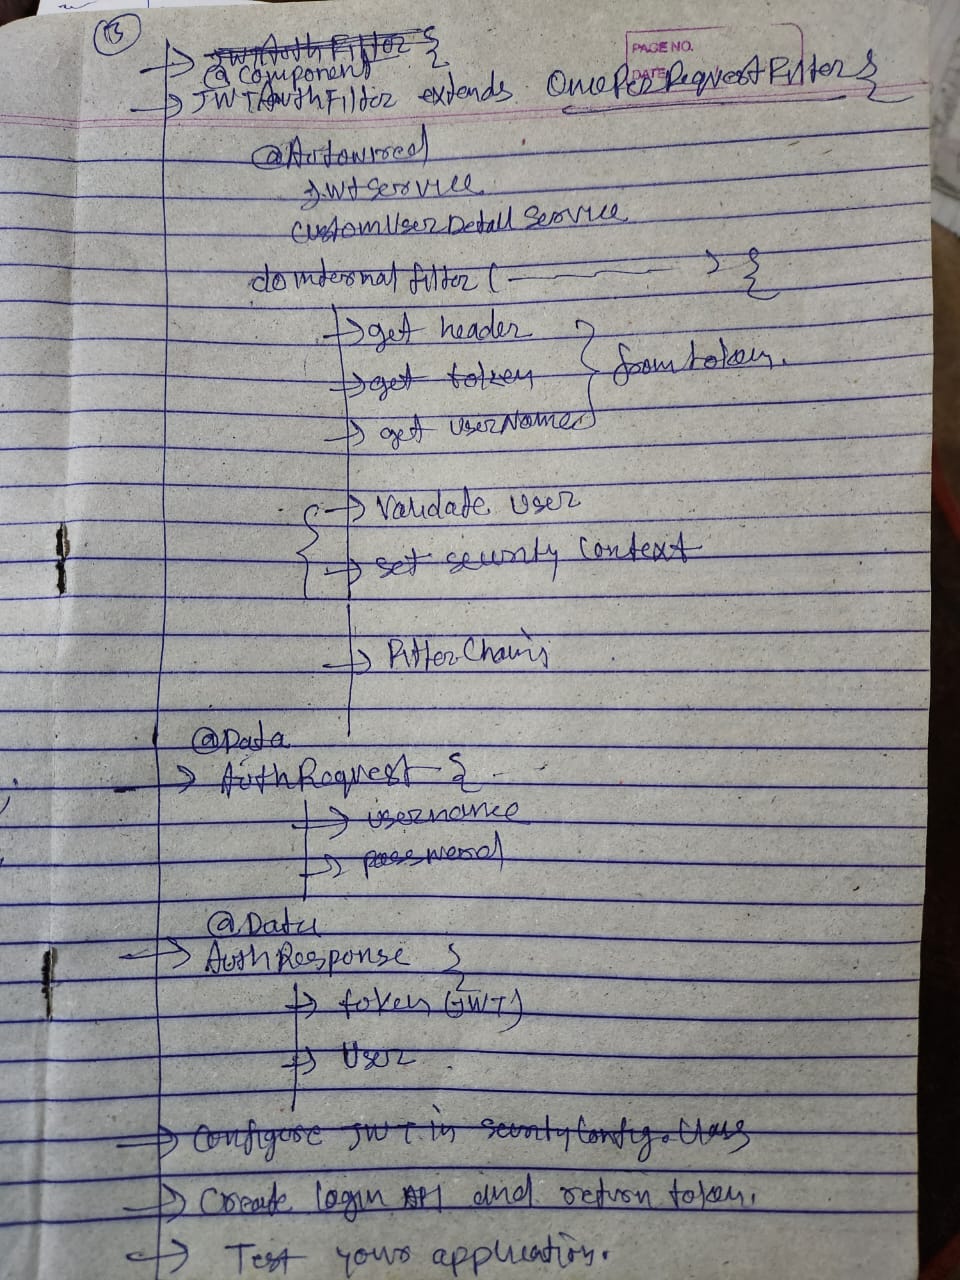 13
JWTAuthFilter {
PAGE NO.
DATE
@Component
→ JWTAuthFilter extends OncePerRequestFilter {
@Autowired
JwtService
CustomUserDetailService
doInternalfilter ( ) {
→ get header
→ get token } from token.
→ get userName
→ Validate user
→ set security context
→ FilterChain
@Data
→ AuthRequest {
→ username
→ password
@Data
→ AuthResponse {
→ token (JWT)
→ User
→ Configure JWT in SecurityConfig.Class
→ Create login API and return token.
→ Test your application.